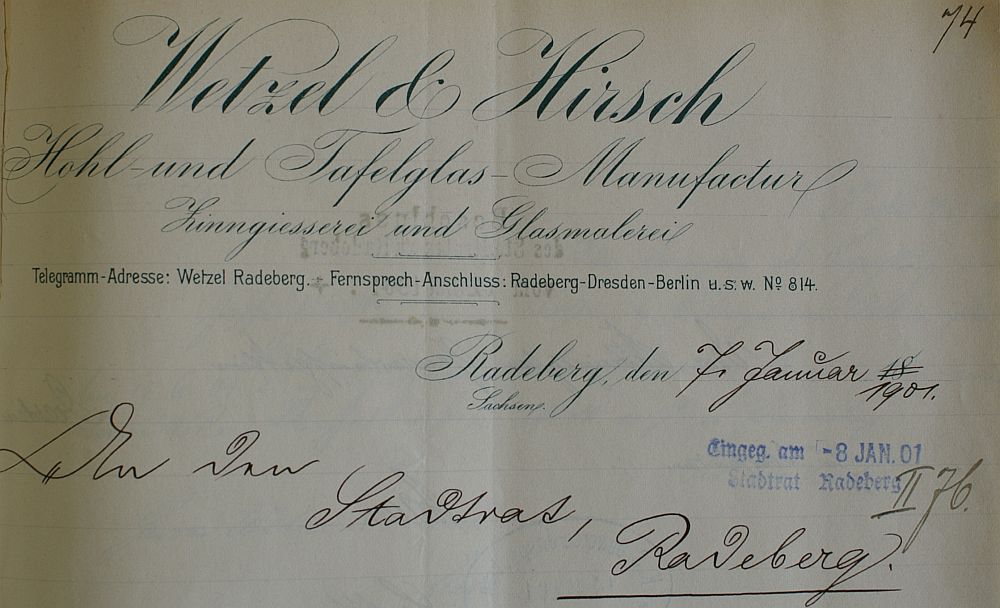 74
Wetzel & Hirsch
Hohl- und Tafelglas-Manufactur
Zinngiesserei und Glasmalerei
Telegramm-Adresse: Wetzel Radeberg. Fernsprech-Anschluss: Radeberg-Dresden-Berlin u.s.w. Nº 814.
Radeberg, den 7. Januar 18
1901.
Sachsen.
Eingeg. am -8 JAN. 01
Stadtrat Radeberg
II 76.
An den
Stadtrat,
Radeberg.